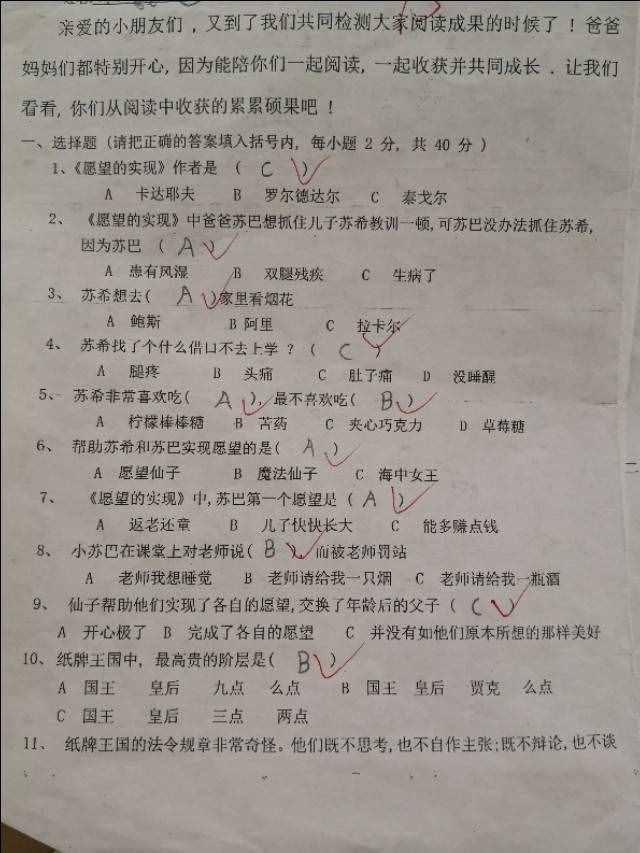 亲爱的小朋友们，又到了我们共同检测大家阅读成果的时候了！爸爸
妈妈们都特别开心，因为能陪你们一起阅读，一起收获并共同成长．让我们
看看，你们从阅读中收获的累累硕果吧！
一、选择题（请把正确的答案填入括号内，每小题 2 分，共 40 分）
1、《愿望的实现》作者是 （ C ）
A 卡达耶夫 B 罗尔德达尔 C 泰戈尔
2、 《愿望的实现》中爸爸苏巴想抓住儿子苏希教训一顿,可苏巴没办法抓住苏希,
因为苏巴 （ A ）
A 患有风湿 B 双腿残疾 C 生病了
3、 苏希想去( A )家里看烟花
A 鲍斯 B 阿里 C 拉卡尔
4、 苏希找了个什么借口不去上学？（ C ）
A 腿疼 B 头痛 C 肚子痛 D 没睡醒
5、 苏希非常喜欢吃( A ), 最不喜欢吃( B )
A 柠檬棒棒糖 B 苦药 C 夹心巧克力 D 草莓糖
6、 帮助苏希和苏巴实现愿望的是( A )
A 愿望仙子 B 魔法仙子 C 海中女王
7、 《愿望的实现》中,苏巴第一个愿望是（ A ）
A 返老还童 B 儿子快快长大 C 能多赚点钱
8、 小苏巴在课堂上对老师说( B ), 而被老师罚站
A 老师我想睡觉 B 老师请给我一只烟 C 老师请给我一瓶酒
9、 仙子帮助他们实现了各自的愿望,交换了年龄后的父子（ C ）
A 开心极了 B 完成了各自的愿望 C 并没有如他们原本所想的那样美好
10、纸牌王国中, 最高贵的阶层是( B )
A 国王 皇后 九点 么点 B 国王 皇后 贾克 么点
C 国王 皇后 三点 两点
11、 纸牌王国的法令规章非常奇怪。他们既不思考,也不自作主张;既不辩论,也不谈